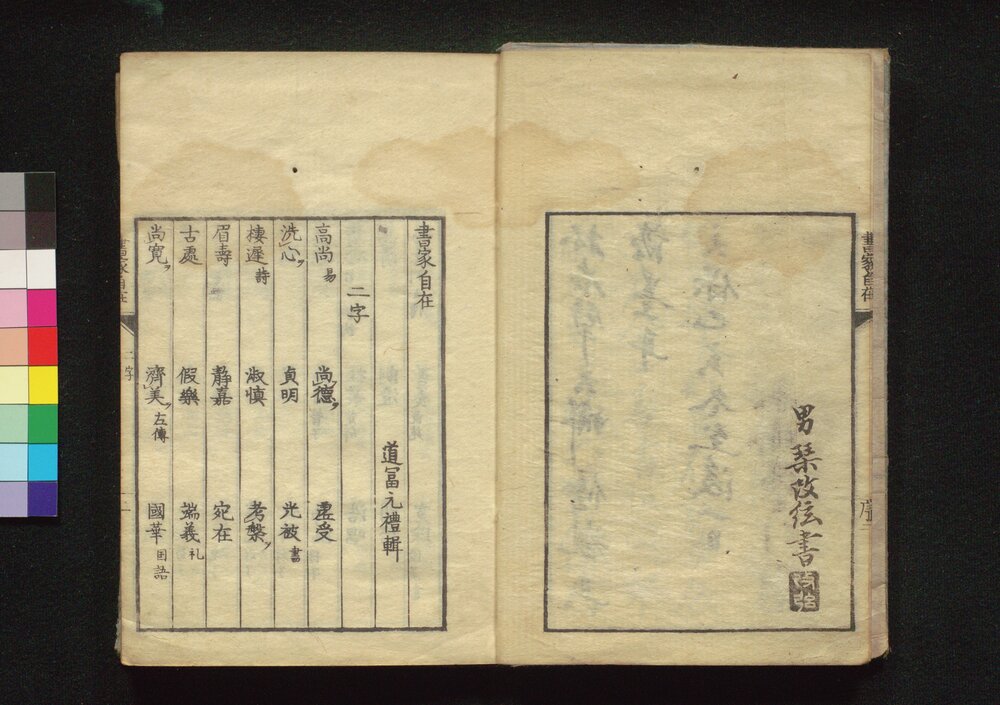 男琴改絃書
書家自在
序
書家自在
道冨元禮輯
二字
高尚易 尚德 虚受
洗心 貞明 光被書
棲遲詩 淑慎 考槃
眉壽 静嘉 宛在
古處 假樂 端義礼
尚寛 濟美左傳 國華国語
書家自在
二字
一